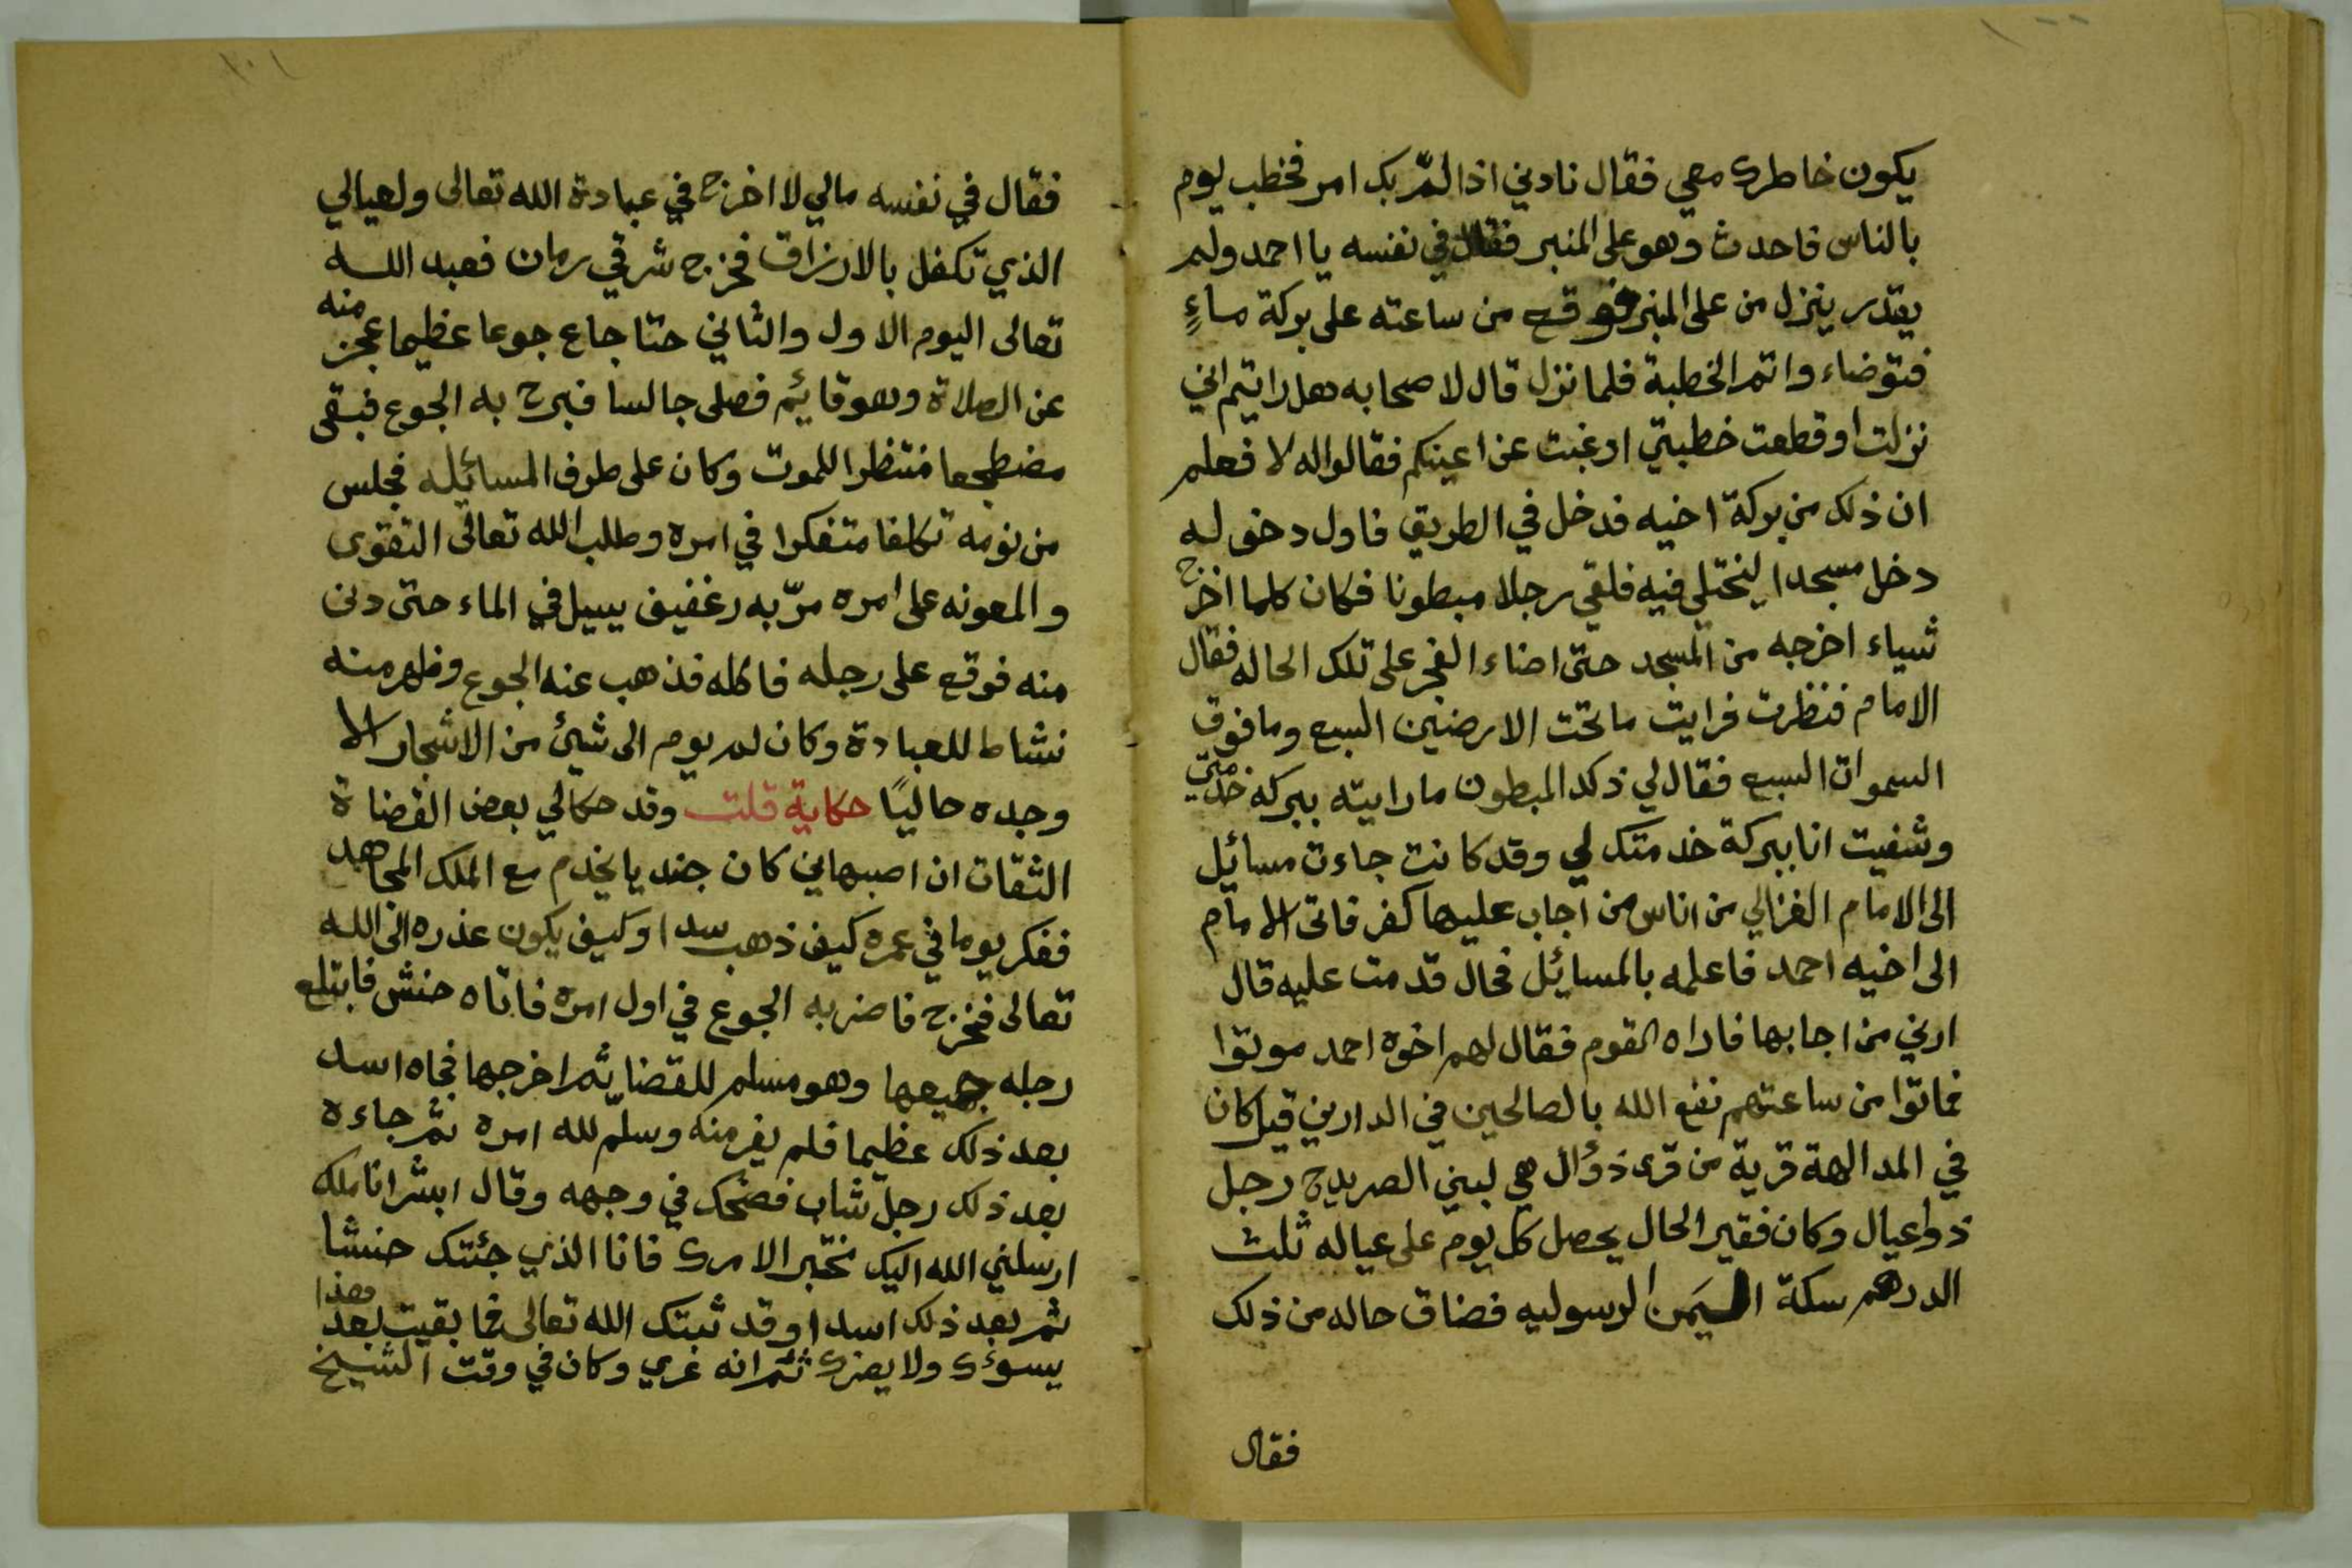 ١٠٠
يكون خاطرك معي فقال نادني اذا لمّ بك امر فخطب يوم
بالناس فاحدث وهو على المنبر فقال في نفسه يا احمد ولم
يقدر ينزل من على المنبر فوقع من ساعته على بركة ماءٍ
فتوضاء واتم الخطبة فلما نزل قال لاصحابه هل رايتم اني
نزلت او قطعت خطبتي او غبت عن اعينكم فقالوا له لا فعلم
ان ذلك من بركة اخيه فدخل في الطريق فاول دخوله
دخل مسجدا ليختلي فيه فلقي رجلا مبطونا فكان كلما اخرج
شياء اخرجه من المسجد حتى اضاء الفجر على تلك الحاله فقال
الامام فنظرت فرايت ما تحت الارضين السبع وما فوق
السموات السبع فقال لي ذلك المبطون ما رايته ببركة خدمتي
وشفيت انا ببركة خدمتك لي وقد كانت جاءت مسائيل
الى الامام الغزالي من اناس من اجاب عليها كفر فاتى الامام
الى اخيه احمد فاعلمه بالمسائيل فحال قدمت عليه قال
ارني من اجابها فاراه القوم فقال لهم اخوه احمد موتوا
فماتوا من ساعتهم نفع الله بالصالحين في الدارين قيل كان
في المدالهة قرية من قرى ذؤال هي لبني الصريدح رجل
ذوا عيال وكان فقير الحال يحصل كل يوم على عياله ثلث
الدرهم سكة اليمن الرسوليه فضاق حاله من ذلك
فقال
١٠١
فقال في نفسه مالي لا اخرج في عبادة الله تعالى ولعيالي
الذي تكفل بالارزاق فخرج شرقي رمان فعبد الله
تعالى اليوم الاول والثاني حتا جاع جوعا عظيما عجز منه
عن الصلاة وهو قائيم فصلى جالسا فبرح به الجوع فبقى
مضطجعا منتظرا للموت وكان على طرف المسائيله فجلس
من نومه تكلفا متفكرا في امره وطلب الله تعالى التقوى
والمعونه على امره مرّ به رغفيف يسيل في الماء حتى دنى
منه فوقع على رجله فاكله فذهب عنه الجوع وظهر منه
نشاط للعبادة وكان لم يوم الى شيئ من الاشجار الا
وجده حاليًا حكاية قلت وقد حكالي بعض القضاة
الثقات ان اصبهاني كان جنديا يخدم مع الملك المجاهد
ففكر يوما في عمره كيف ذهب سدا وكيف يكون عذره الى الله
تعالى فخرج فاضر به الجوع في اول امره فاتاه حنش فابتلع
رجله جميعها وهو مسلم للقضا ثم اخرجها فجاه اسد
بعد ذلك عظيما فلم يفر منه وسلّم لله امره ثم جاءه
بعد ذلك رجل شاب فضحك في وجهه وقال ابشر انا ملك
ارسلني الله اليك نختبر الامرك فانا الذي جئتك حنشا
ثم بعد ذلك اسدا وقد ثبتك الله تعالى فما بقيت بعد هذا
يسوءك ولا يضرك ثم انه غري وكان في وقت الشيخ